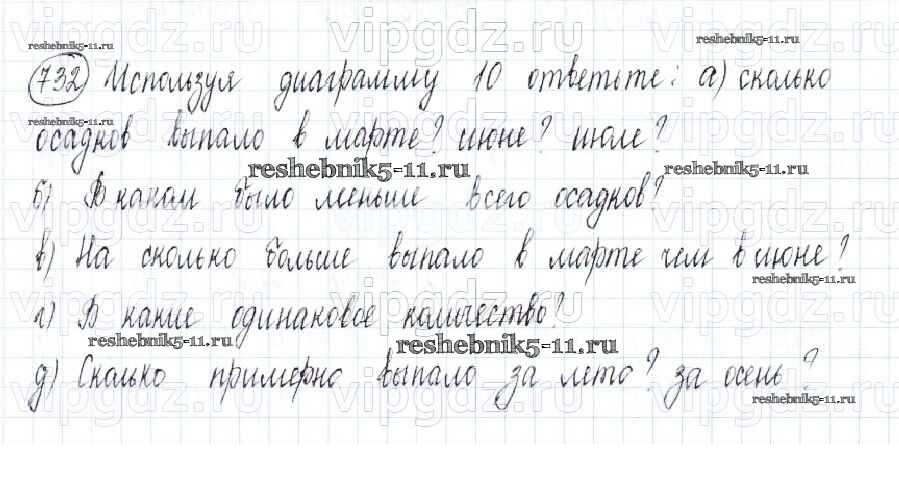 vipgdz.ru vipgdz.ru vipgdz.ru vipgdz.ru
reshebnik5-11.ru reshebnik5-11.ru
732 Используя диаграмму 10 ответьте: а) сколько
reshebnik5-11.ru
осадков выпало в марте? июне? июле?
reshebnik5-11.ru reshebnik5-11.ru
б) В каком было меньше всего осадков?
в) На сколько больше выпало в марте чем в июне?
reshebnik5-11.ru
г) В какие одинаковое количество?
reshebnik5-11.ru reshebnik5-11.ru
д) Сколько примерно выпало за лето? за осень?
reshebnik5-11.ru